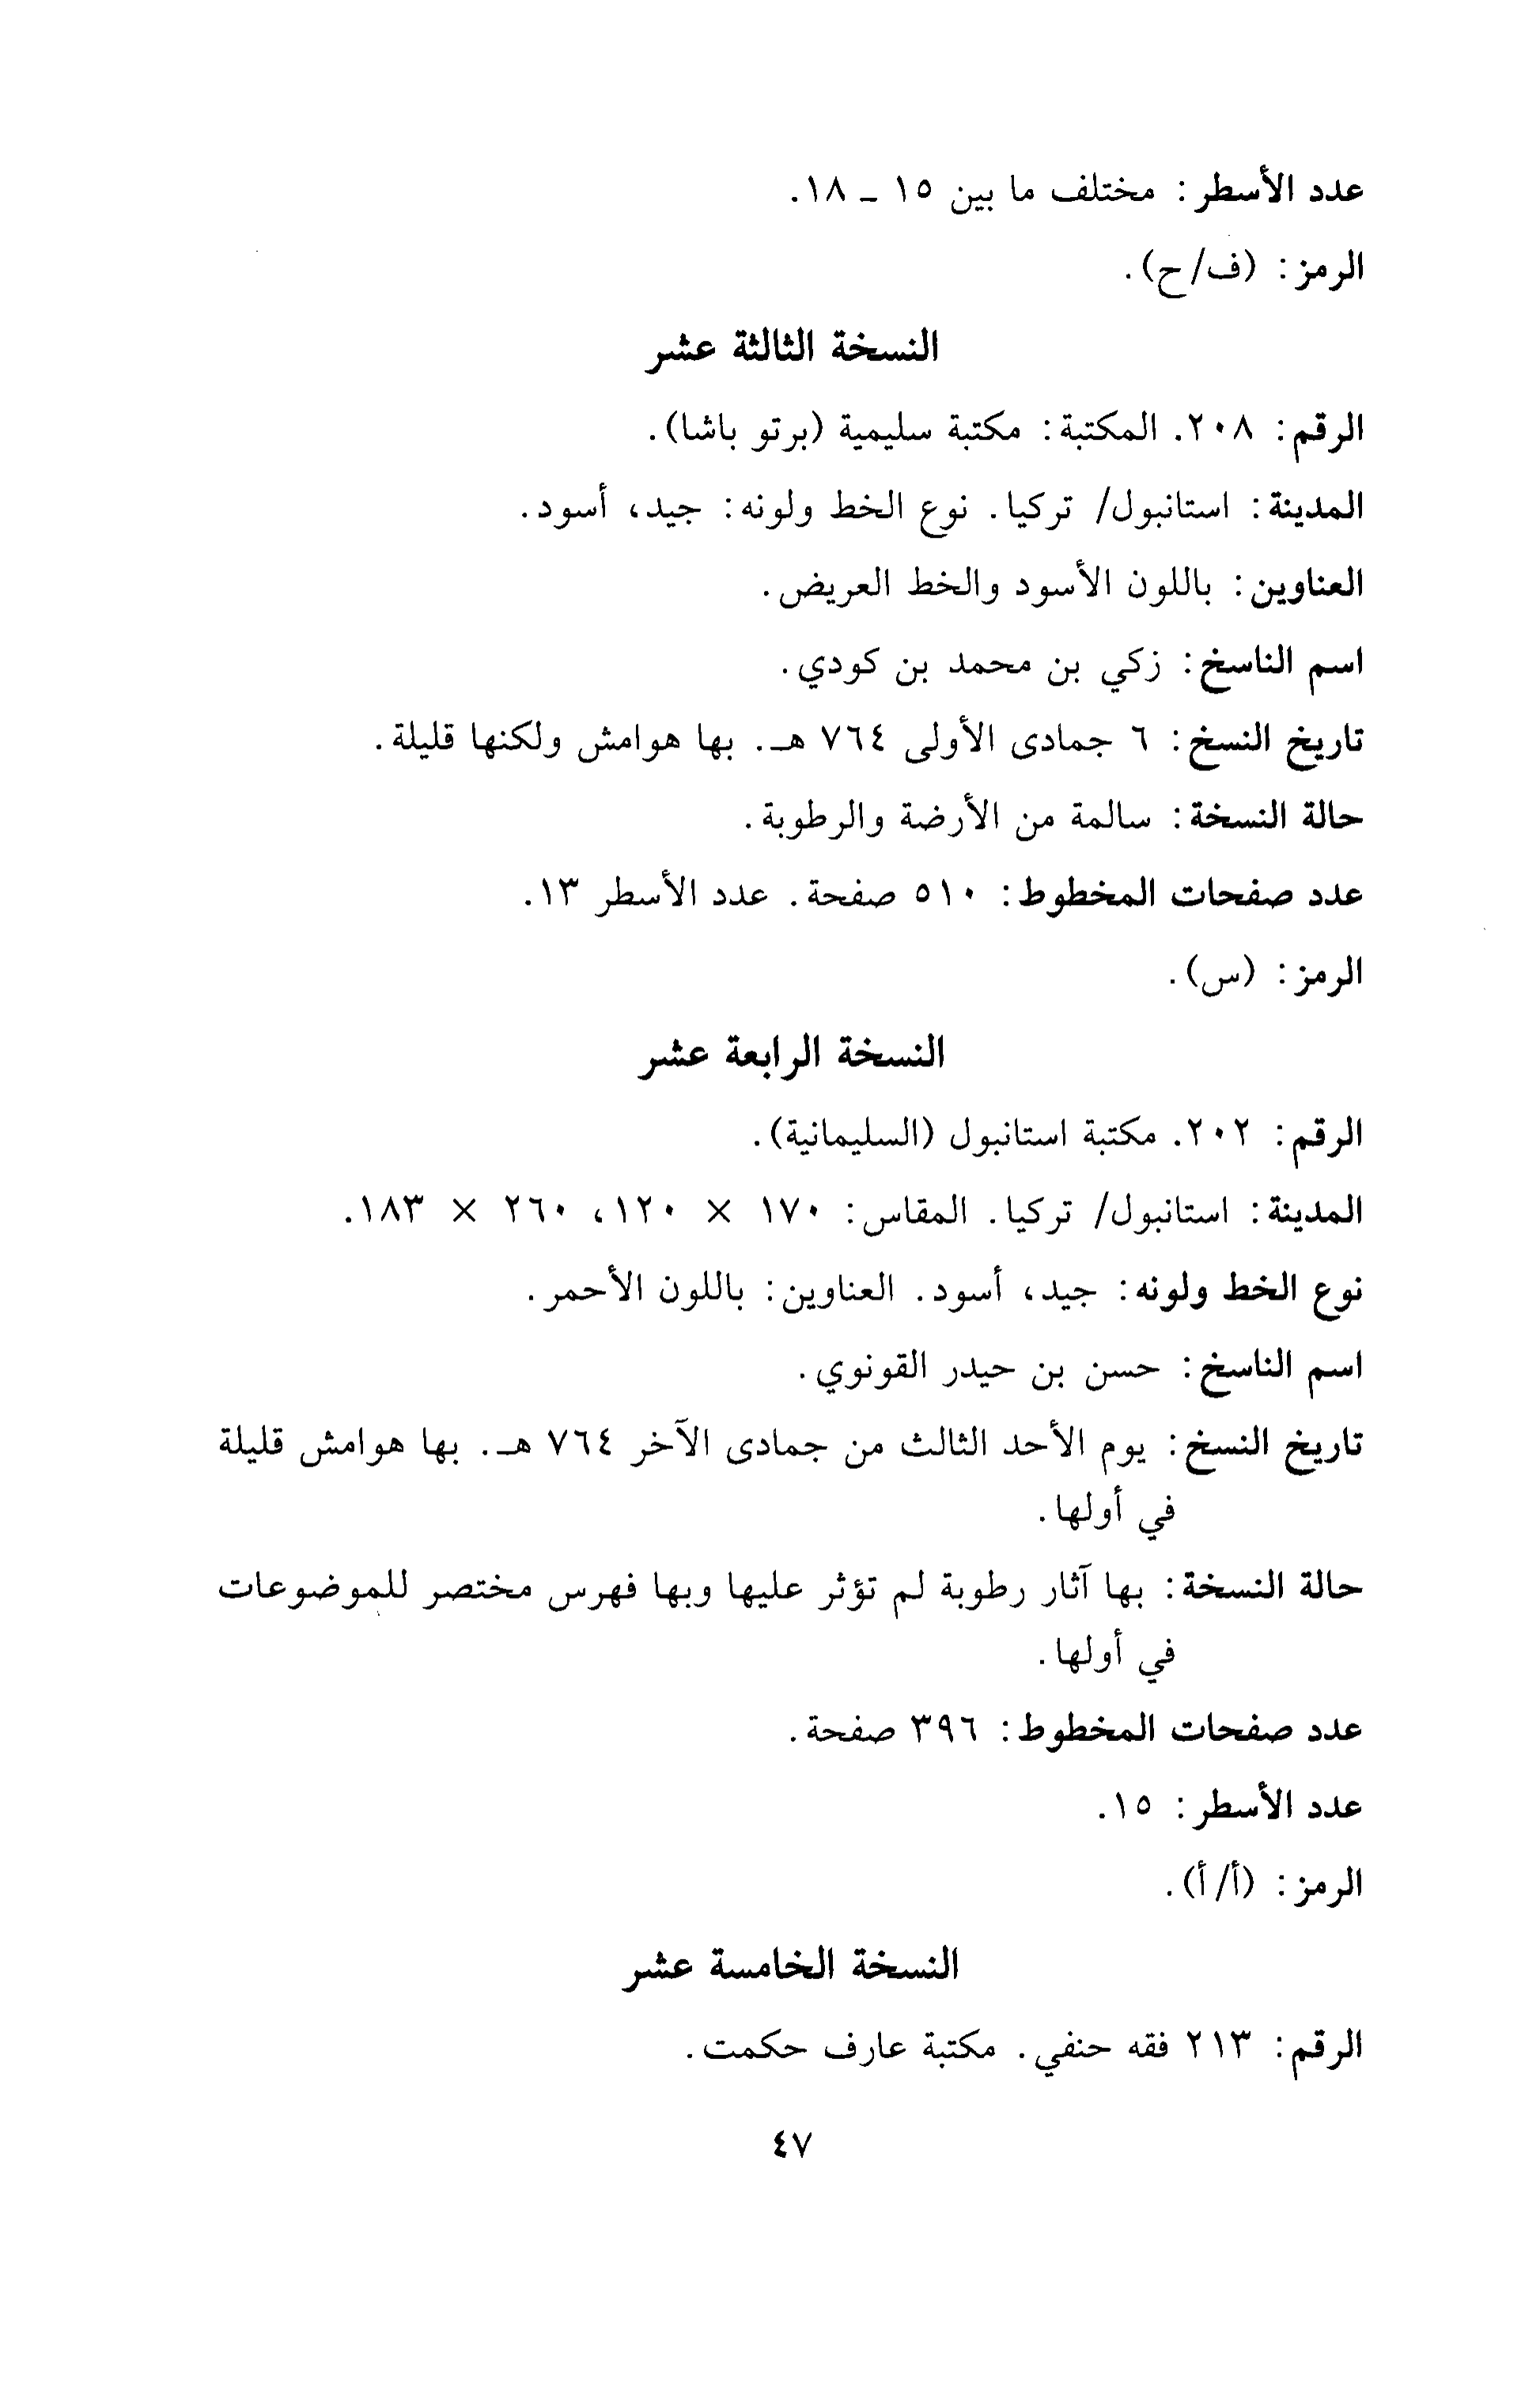 عدد الأسطر: مختلف ما بين ١٥ ـ ١٨.
الرمز: (ف/ح).
النسخة الثالثة عشر
الرقم: ٢٠٨. المكتبة: مكتبة سليمية (برتو باشا).
المدينة: استانبول/ تركيا. نوع الخط ولونه: جيد، أسود.
العناوين: باللون الأسود والخط العريض.
اسم الناسخ: زكي بن محمد بن كودي.
تاريخ النسخ: ٦ جمادى الأولى ٧٦٤ هـ. بها هوامش ولكنها قليلة.
حالة النسخة: سالمة من الأرضة والرطوبة.
عدد صفحات المخطوط: ٥١٠ صفحة. عدد الأسطر ١٣.
الرمز: (س).
النسخة الرابعة عشر
الرقم: ٢٠٢. مكتبة استانبول (السليمانية).
المدينة: استانبول/ تركيا. المقاس: ١٧٠ × ١٢٠، ٢٦٠ × ١٨٣.
نوع الخط ولونه: جيد، أسود. العناوين: باللون الأحمر.
اسم الناسخ: حسن بن حيدر القونوي.
تاريخ النسخ: يوم الأحد الثالث من جمادى الآخر ٧٦٤ هـ. بها هوامش قليلة
في أولها.
حالة النسخة: بها آثار رطوبة لم تؤثر عليها وبها فهرس مختصر للموضوعات
في أولها.
عدد صفحات المخطوط: ٣٩٦ صفحة.
عدد الأسطر: ١٥.
الرمز: (أ/أ).
النسخة الخامسة عشر
الرقم: ٢١٣ فقه حنفي. مكتبة عارف حكمت.
٤٧